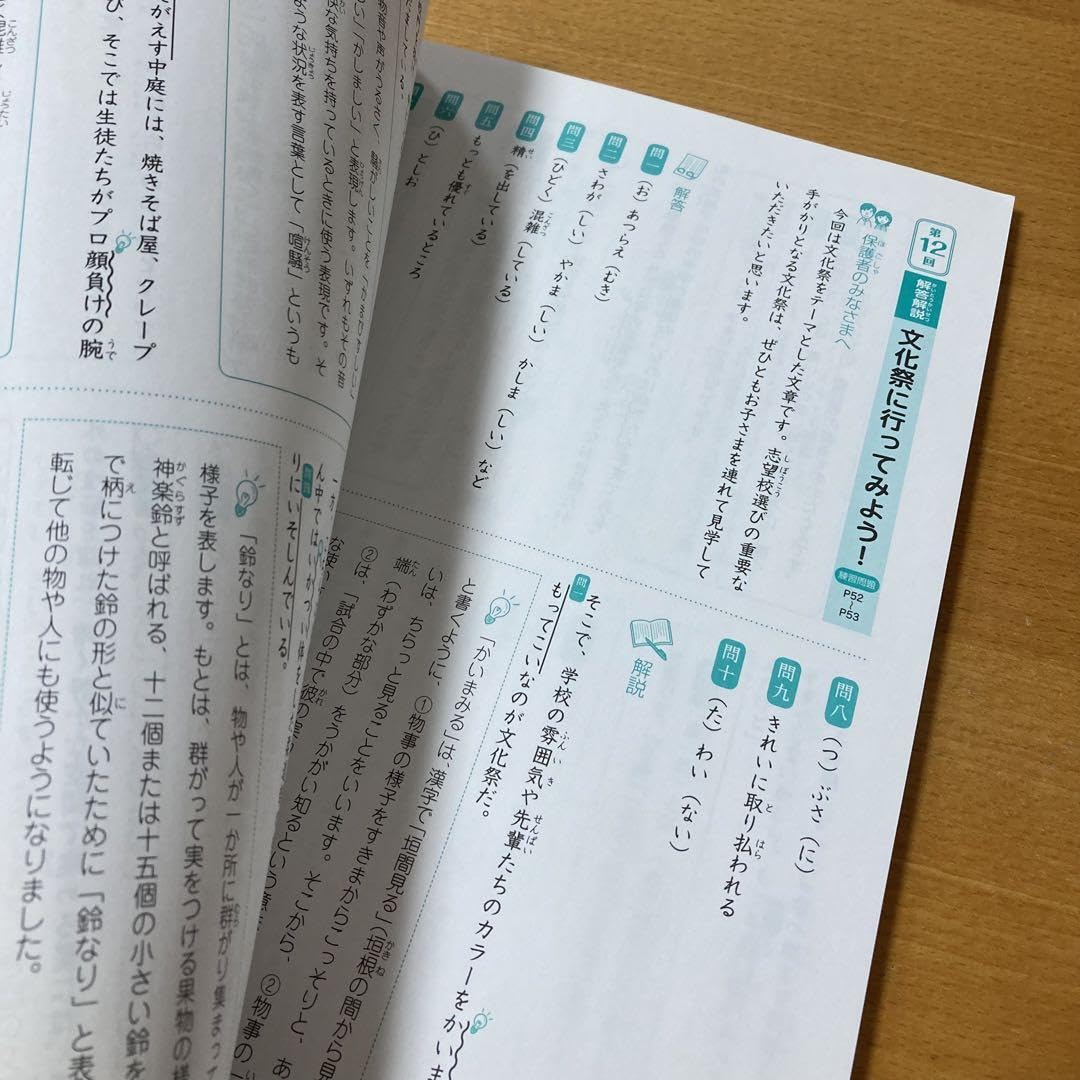 第12回 解答解説 文化祭に行ってみよう！ 練習問題 P52〜P53
保護者のみなさまへ
今回は文化祭をテーマとした文章です。志望校選びの重要な
手がかりとなる文化祭は、ぜひともお子さまを連れて見学して
いただきたいと思います。
解答
問一 （お）あつらえ（むき）
問二 さわが（しい）やかま（しい）かしま（しい）など
問三 （ひどく）混雑（している）
問四 精（を出している）
問五 もっとも優れているところ
問六 （ひ）としお
問八 （つ）ぶさ（に）
問九 きれいに取り払われる
問十 （た）わい（ない）
解説
問一 そこで、学校の雰囲気や先輩たちのカラーをかいま
もってこいなのが文化祭だ。
「かいまみる」は、漢字で「垣間見る」（垣根の間から見
と書くように、①物事の様子をすきまからこっそりと、あ
いは、ちらっと見ることをいいます。そこから、②物事の一
端（わずかな部分）をうかがい知るという意
②は、「試合の中で彼の
な使い
状な気持ちを持っているときに使う表現です。そ
ような状況を表す言葉として「喧騒」というも
がえす中庭には、焼きそば屋、クレープ
び、そこでは生徒たちがプロ顔負けの腕
りにいそしんでいる。
「鈴なり」とは、物や人が一か所に群がり集まって
様子を表します。もとは、群がって実をつける果物の様
神楽鈴と呼ばれる、十二個または十五個の小さい鈴を
で柄につけた鈴の形と似ていたために「鈴なり」と表
転じて他の物や人にも使うようになりました。